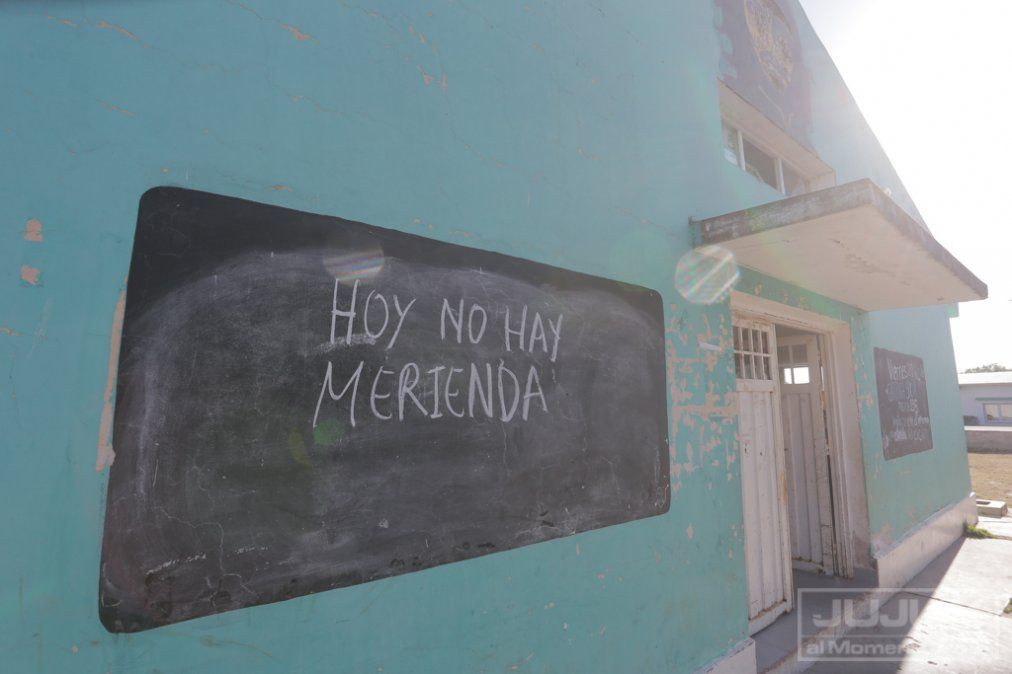 HOY NO HAY
MERIENDA
Viernes
JUJUY
al Momento